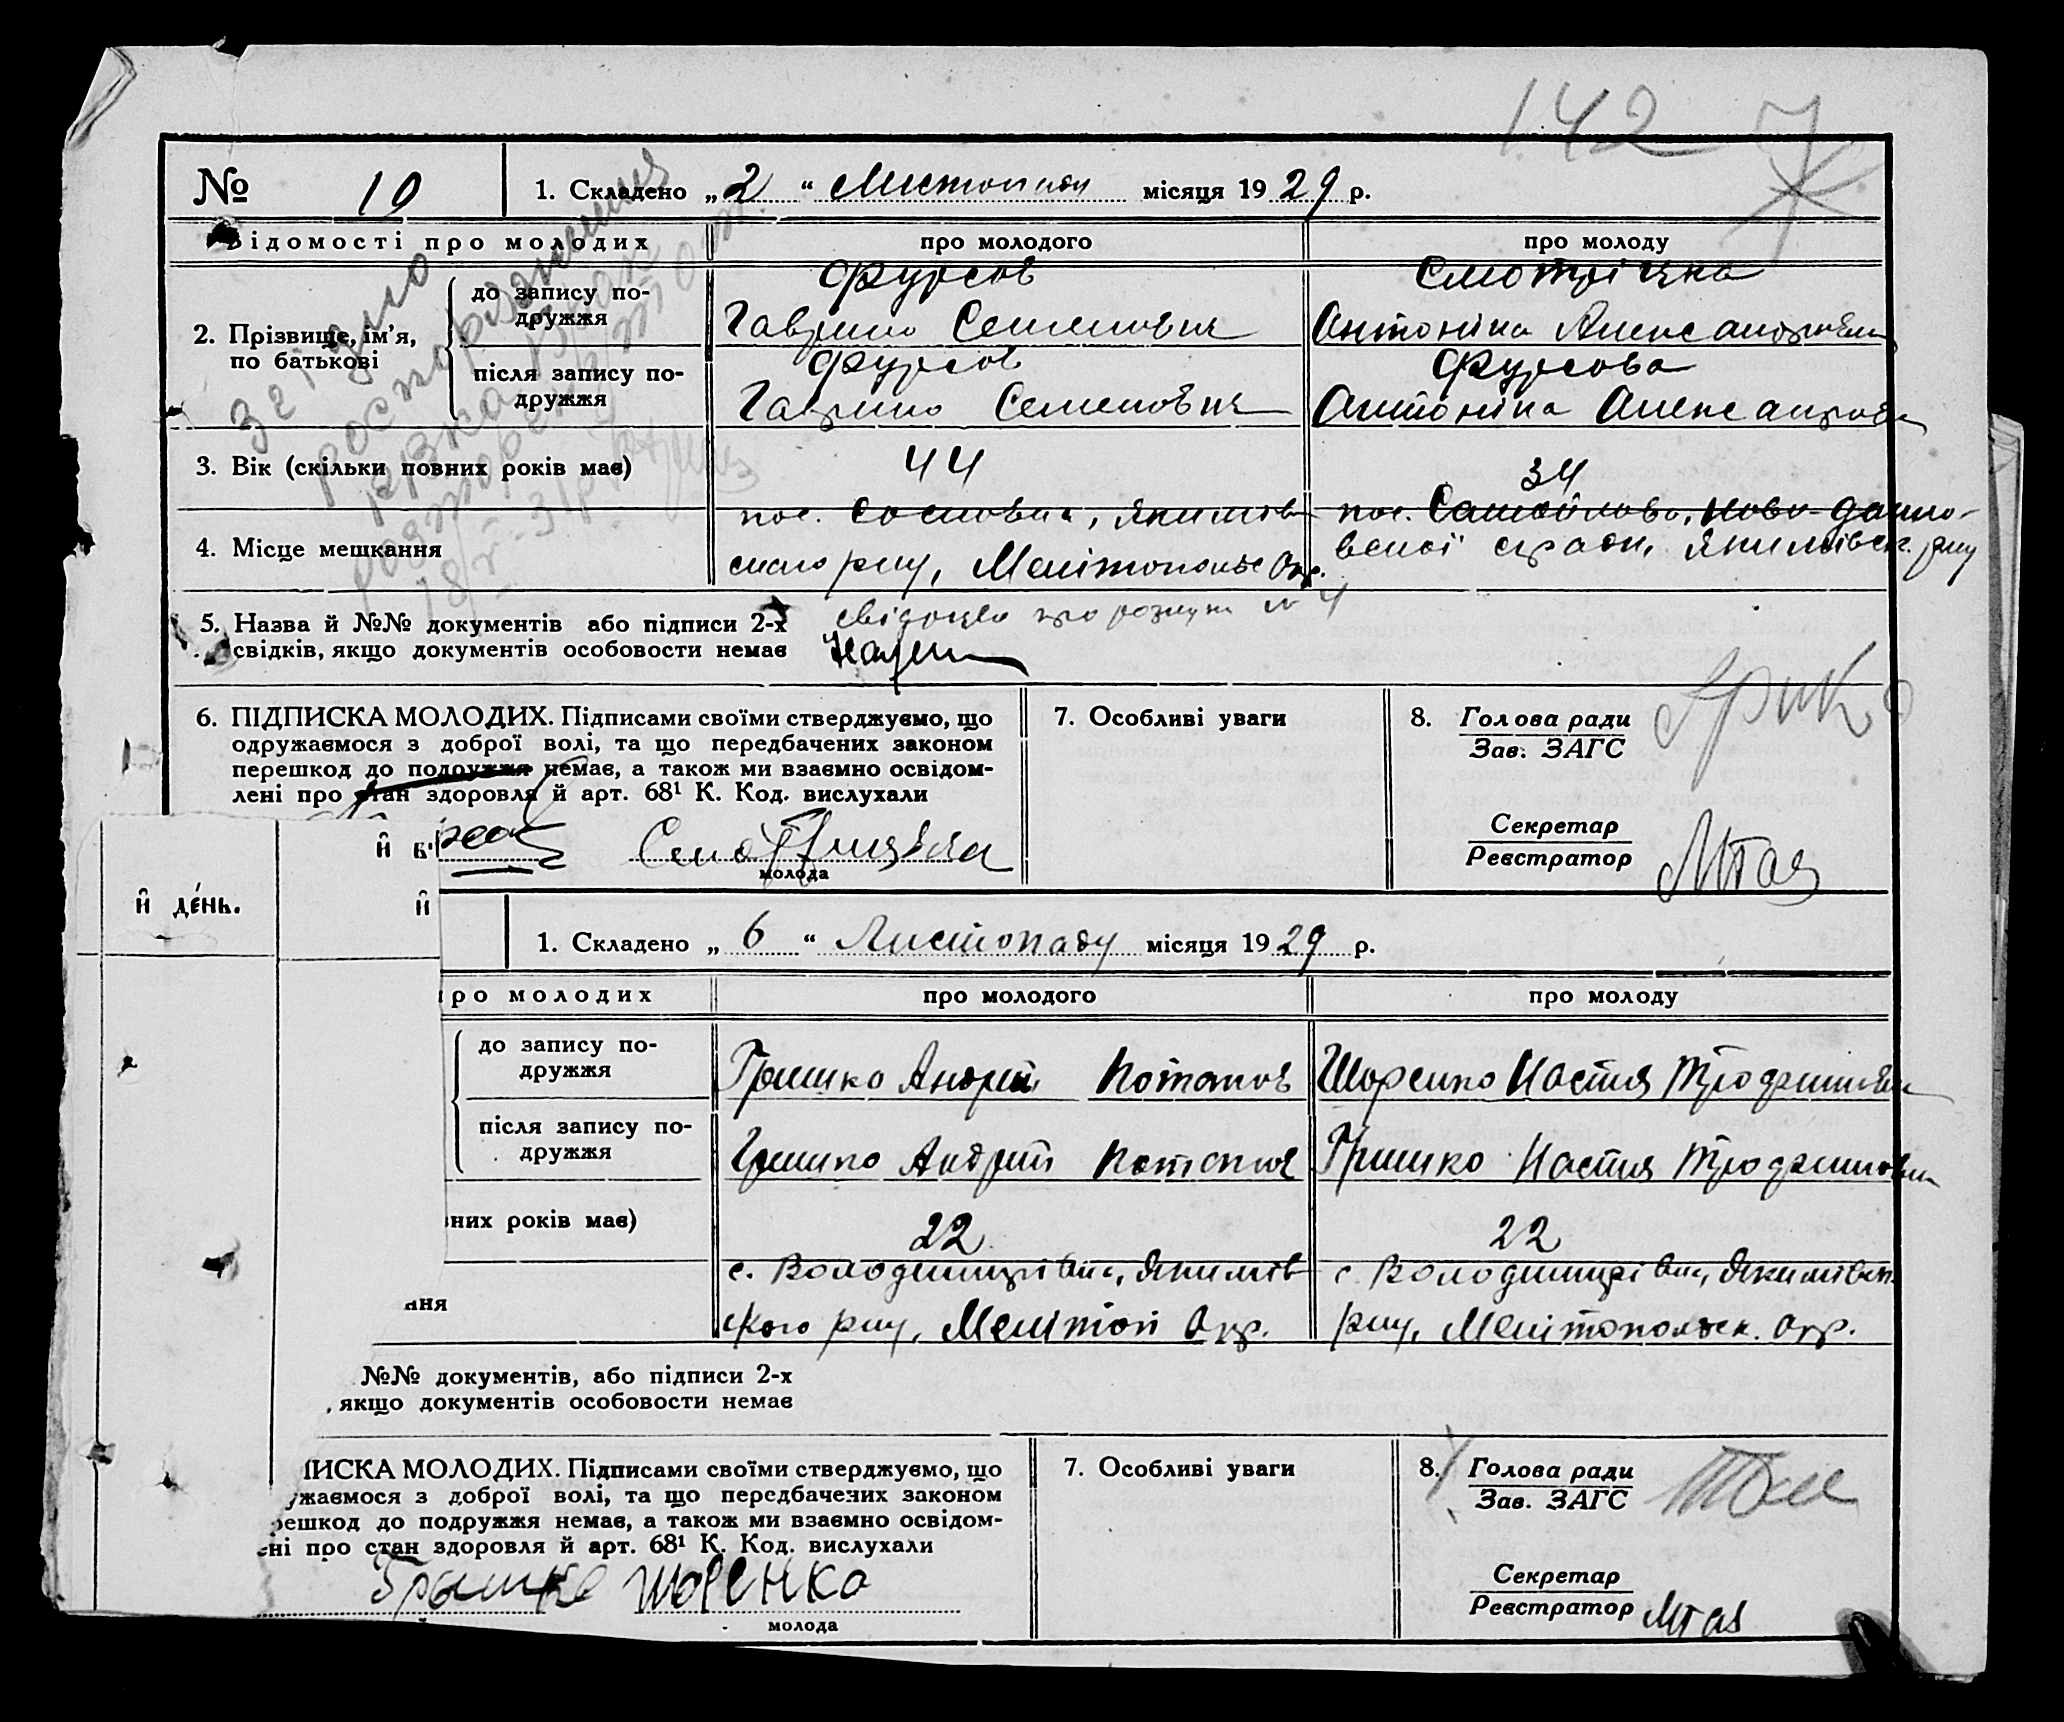 142
№ 10 1. Складено „2“ Листопаду місяця 1929 р.
Відомості про молодих про молодого про молоду
2. Прізвище, ім'я, по батькові
до запису подружжя
Фурсов
Гаврило Семенович
Смотріцка
Антоніна Александровн
після запису подружжя
Фурсов
Гаврило Семенович
Фурсова
Антоніна Александров
3. Вік (скільки повних років має) 44 34
4. Місце мешкання
пос. Сосновка, Якимів
ського р-ну, Мелітопольс Окр.
пос.
вської сради, Якимівськ. р-ну
Згідно
розпорядження
5. Назва й №№ документів або підписи 2-х
свідків, якщо документів особовости немає
свідоцтво про розлуку № 4
6. ПІДПИСКА МОЛОДИХ. Підписами своїми стверджуємо, що
одружаємося з доброї волі, та що передбачених законом
перешкод до подружжя немає, а також ми взаємно освідом-
лені про стан здоровля й арт. 68¹ К. Код. вислухали
молода
7. Особливі уваги
8. Голова ради
Зав. ЗАГС
Секретар
Реєстратор
й в
й день. й
1. Складено „6“ Листопаду місяця 1929 р.
про молодих про молодого про молоду
до запису по-
дружжя
Гришко Андрій Потапов
Шоренко Настя Трофимівн
після запису по-
дружжя
Гришко Андрій Потапич
Гришко Настя Трофимовн
вних років має) 22 22
ння
с. Володимирівка, Якимів
ского р-ну, Мелітоп Окр.
с. Володимирівка, Якимівск.
р-ну, Мелітопольск. Окр.
№№ документів, або підписи 2-х
, якщо документів особовости немає
ПИСКА МОЛОДИХ. Підписами своїми стверджуємо, що
ужаємося з доброї волі, та що передбачених законом
решкод до подружжя немає, а також ми взаємно освідом-
ені про стан здоровля й арт. 68¹ К. Код. вислухали
Гришко Шоренко
молода
7. Особливі уваги
8. Голова ради
Зав. ЗАГС
Секретар
Реєстратор